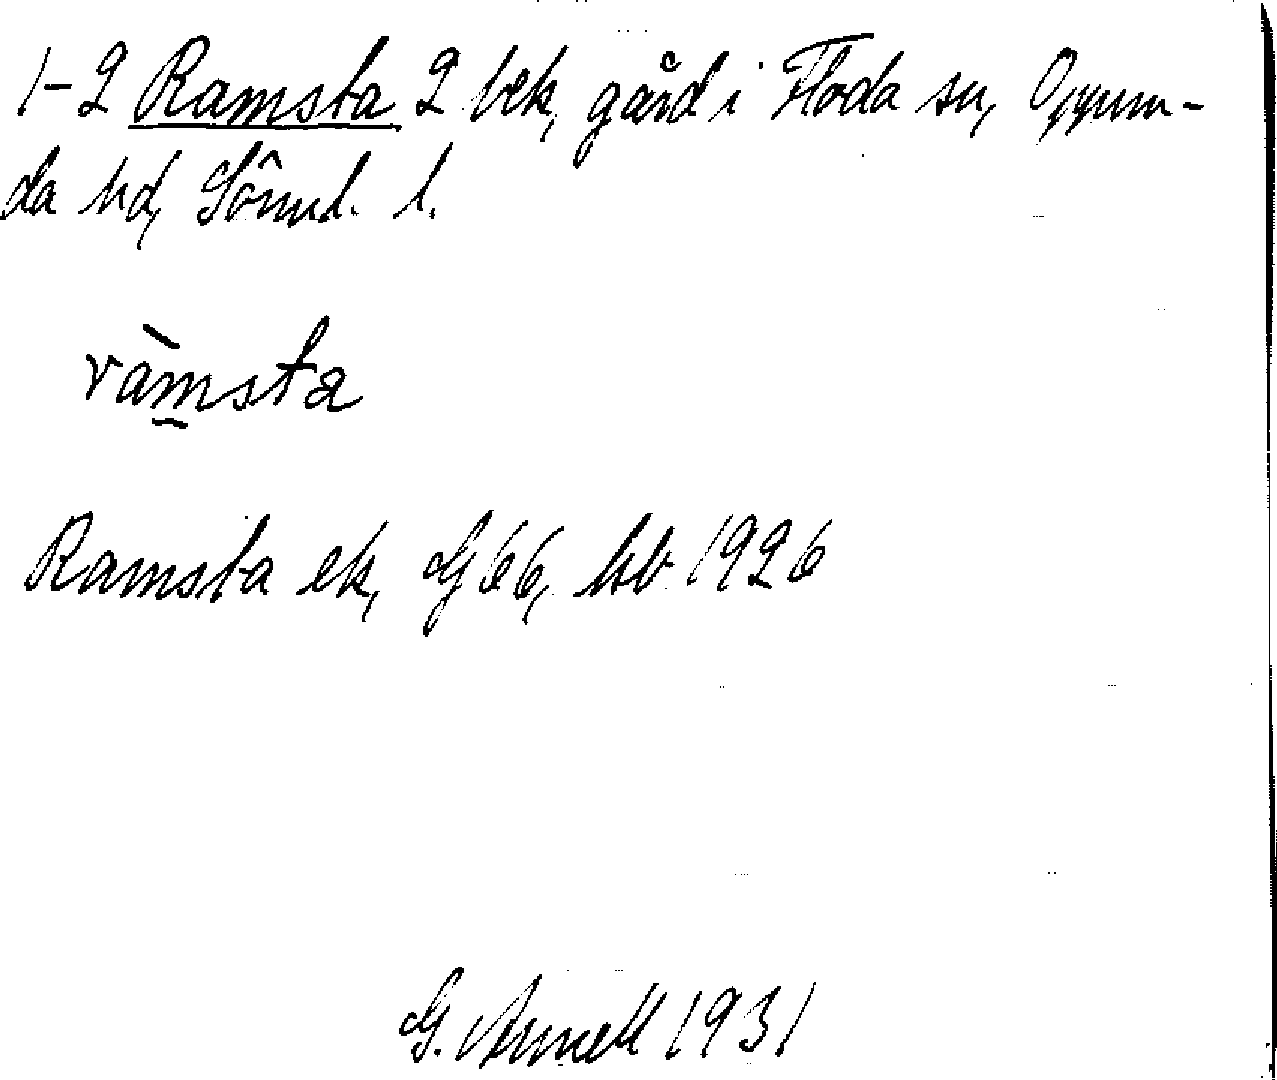 1-2 Ramsta 2 bek, gård i Floda sn, Oppun-
da hd, Södml. l.
ràmsta
Ramsta ek, G 66, hb 1926
G. Arnell 1931